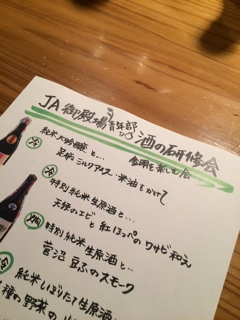 JA御殿場青年部の酒の研修会
食用を楽しむ会
純米大吟醸と…
冷
足柄シルクアイス 米油をかけて
特別純米生原酒と…
天使のエビと紅ほっぺのワサビ和え
特別純米生原酒と…
菅沼豆ふのスモーク
冷
純米しぼりたて生原酒
種野菜の